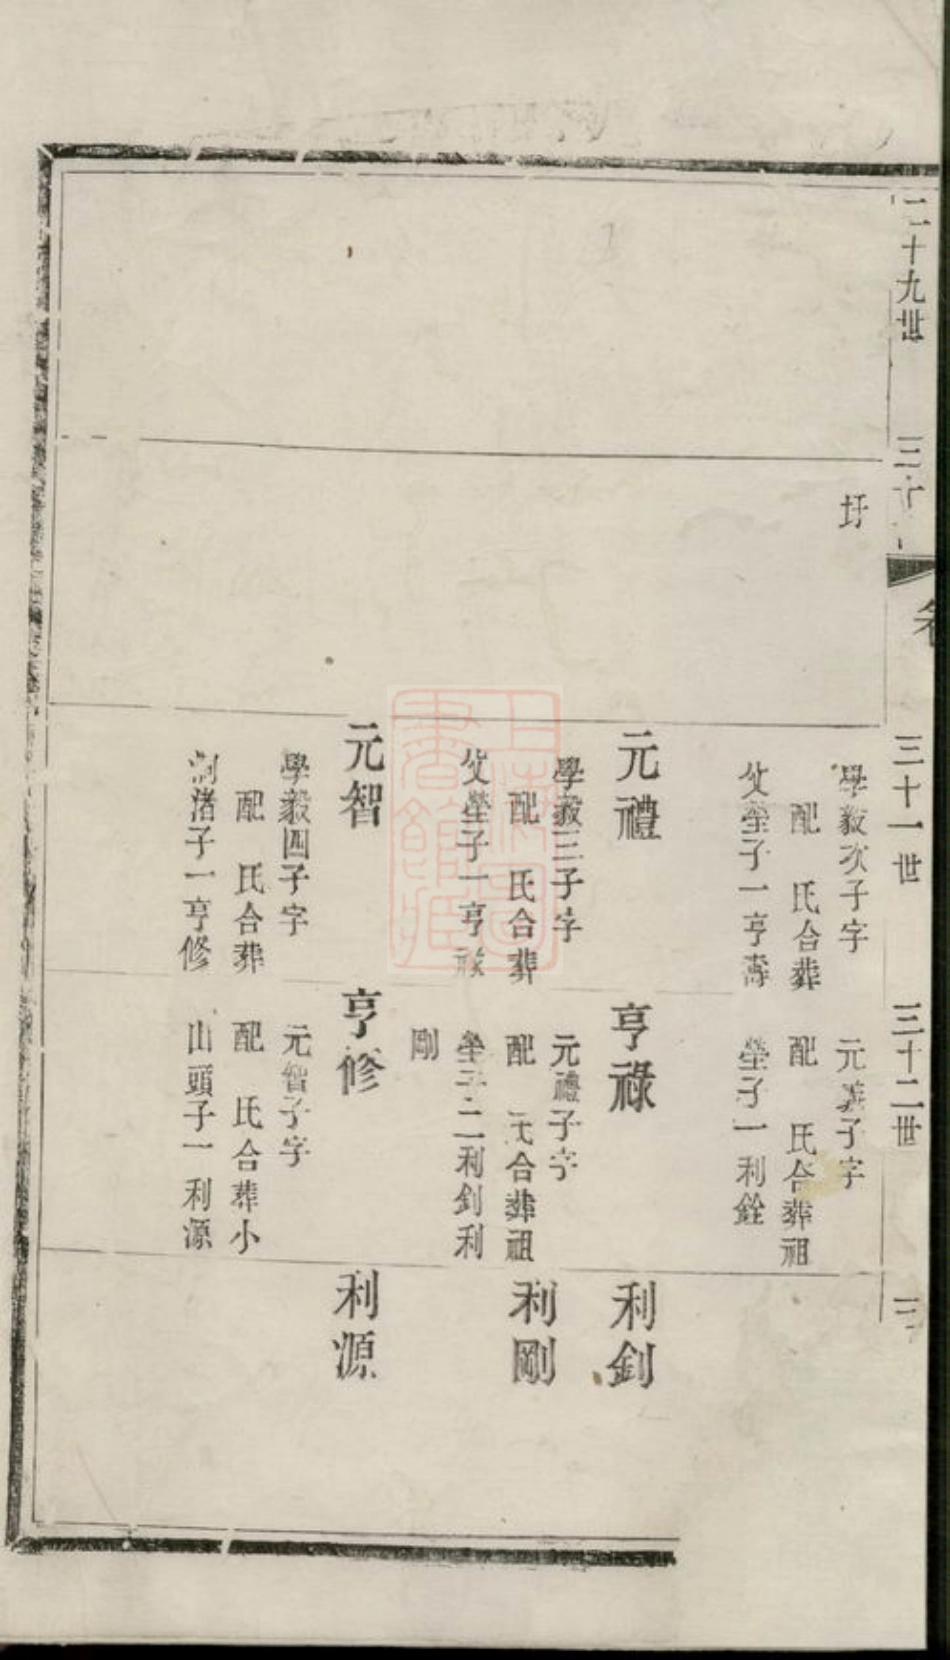 二十九世
三十
卷
三十一世
三十二世
三
圩
學毅次子字
配　氏合葬
父塋子一亨壽
元義子字
配　氏合葬祖
塋子一利銓
元禮
學毅三子字
配　氏合葬
父塋子一亨祿
亨祿
元禮子字
配　氏合葬祖
塋子二利釗利
剛
利釗
利剛
元智
學毅四子字
配　氏合葬
渚子一亨修
亨修
元智子字
配　氏合葬小
山頭子一利源
利源
上海圖書館藏